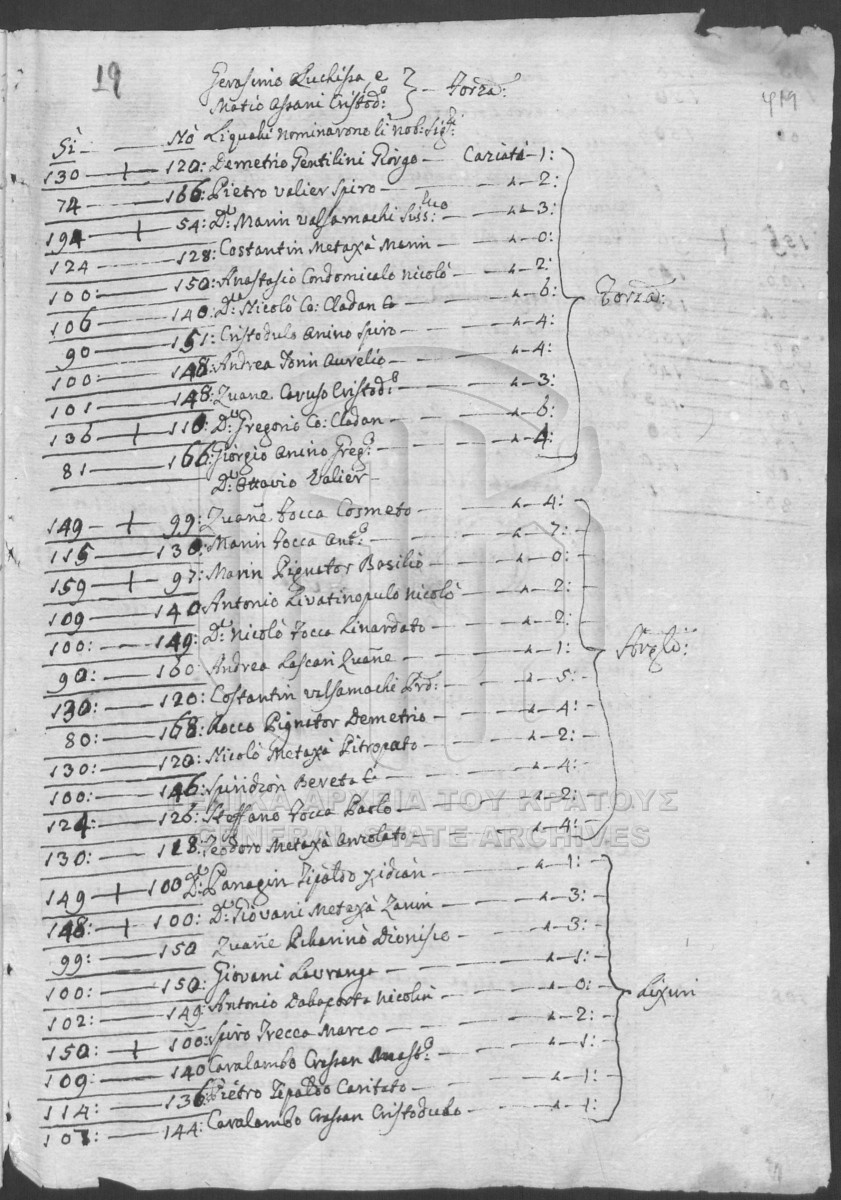 19
419
Gerasimo Luchissa e
Matio Assani Cristod.o } — Forza:
Sì — No Li quali nominarono li nob: Sig.ri
130 — + — 120: Demetrio Gentilini Giorgo — Cariatà — 1:
74 — 166: Pietro Valier Spiro — " — 2:
194 — + — 54: D.r Marin Valsamachi — " — 3:
124 — 128: Costantin Metaxà Marin — " — 0:
100: — 150: Anastasio Condomicalo Nicolò — " — 2:
106 — 140: D.r Nicolò Co: Cladan — " — 6:
90 — 151: Cristodulo Anino Spiro — " — 4:
100: — 148: Andrea Tonin Aurelio — " — 4:
101 — 148: Zuane Caruso Cristod.o — " — 3:
136 — + — 110: D.r Gregorio Co: Cladan — " — 6:
81 — 166: Giorgio Anino Greg.o — " — 4:
D.r Ottavio Valier —
Forza:
149 — + — 99: Zuañe Tocca Cosmeto — " — 4:
115 — 130: Marin Tocca Ant.o — " — 7:
159 — + — 97: Marin Pignator Basilio — " — 0:
109 — 140 Antonio Livatinopulo Nicolò — " — 2:
100: — 149: D.r Nicolò Tocca Linardato — " — 2:
90: — 160 Andrea Lascari Zuañe — " — 1:
130: — 120: Costantin Valsamachi — " — 5:
80: — 168: Rocco Pignator Demetrio — " — 4:
130: — 120: Nicolò Metaxà Pitropato — " — 2:
100: — 146: Spiridion Bereta — " — 4:
124: — 126: Steffano Tocca Paolo — " — 2:
130: — 118: Teodoro Metaxà Anzolato — " — 4:
149 — + — 100 D.r Panagin Tipaldo — " — 1:
148: — + — 100: D.r Giovani Metaxà Zanin — " — 3:
99: — 150 Zuañe Picharino Dionisio — " — 3:
100: — 150: Giovani Lavranga — " — 1:
102: — 149: Antonio Dalaporta Nicolin — " — 0:
150: — + — 100: Spiro Trecca Marco — " — 2:
109: — 140 Caralambo Crassan — " — 1:
114: — 136 Pietro Tipaldo Caritato — " — 1:
107: — 144: Caralambo Crassan Cristodulo — " — 1:
Lixuri
ΓΕΝΙΚΑ ΑΡΧΕΙΑ ΤΟΥ ΚΡΑΤΟΥΣ
GENERAL STATE ARCHIVES